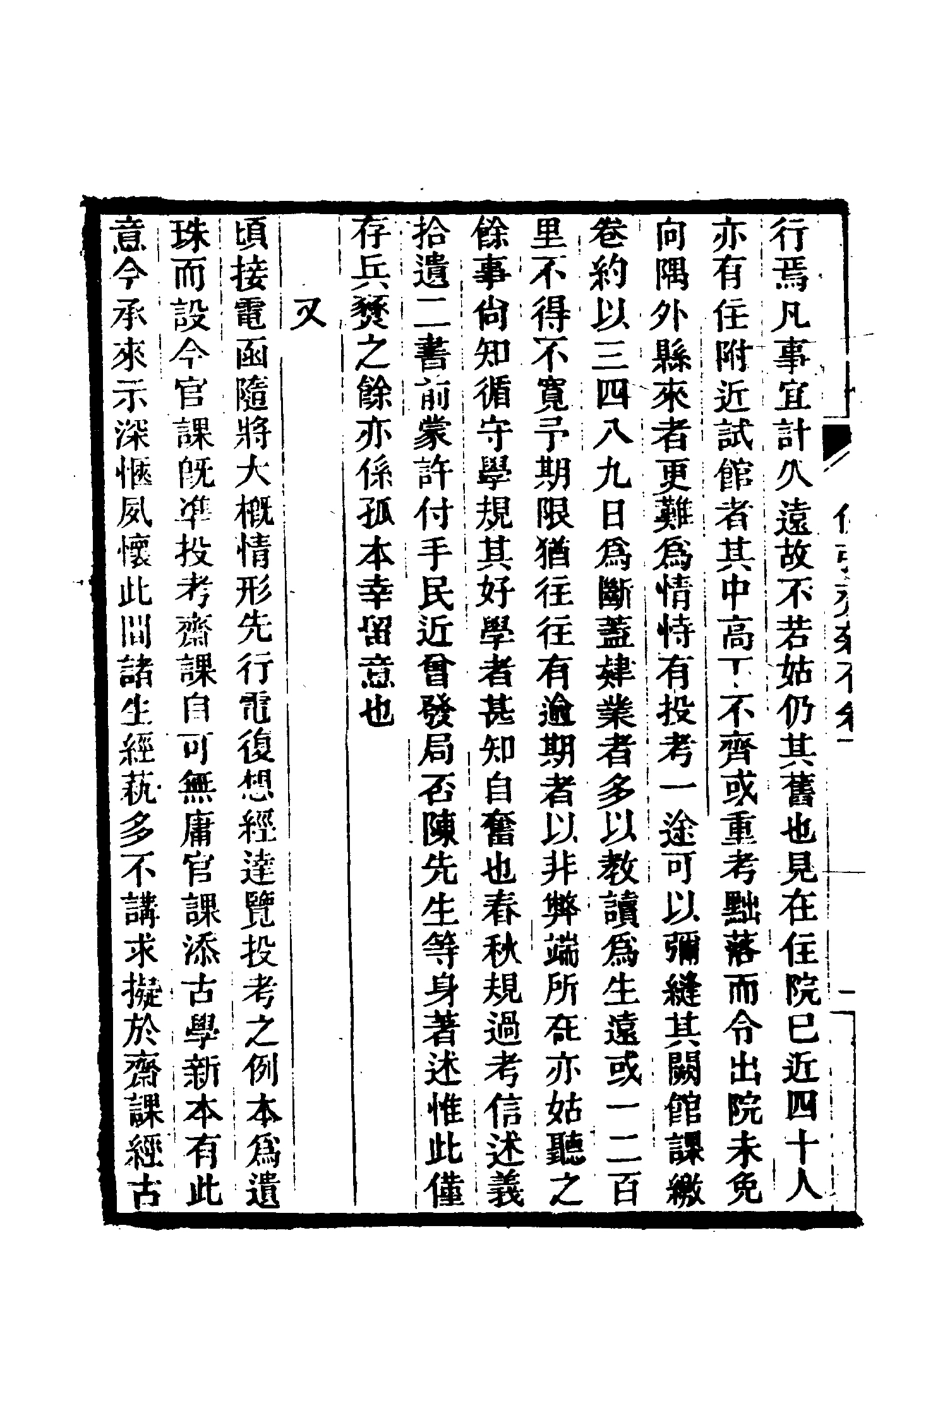 行焉凡事宜計久遠故不若姑仍其舊也見在住院已近四十人
亦有住附近試館者其中高下不齊或重考黜落而令出院未免
向隅外縣來者更難為情恃有投考一途可以彌縫其闕館課繳
卷約以三四八九日為斷蓋肄業者多以教讀為生遠或一二百
里不得不寬予期限猶往往有逾期者以非弊端所在亦姑聽之
餘事尙知循守學規其好學者甚知自奮也春秋規過考信述義
拾遺二書前蒙許付手民近曾發局否陳先生等身著述惟此僅
存兵燹之餘亦係孤本幸留意也
又
頃接電函隨將大概情形先行電復想經達覽投考之例本為遺
珠而設今官課旣準投考齋課自可無庸官課添古學新本有此
意今承來示深愜夙懷此間諸生經蓺多不講求擬於齋課經古